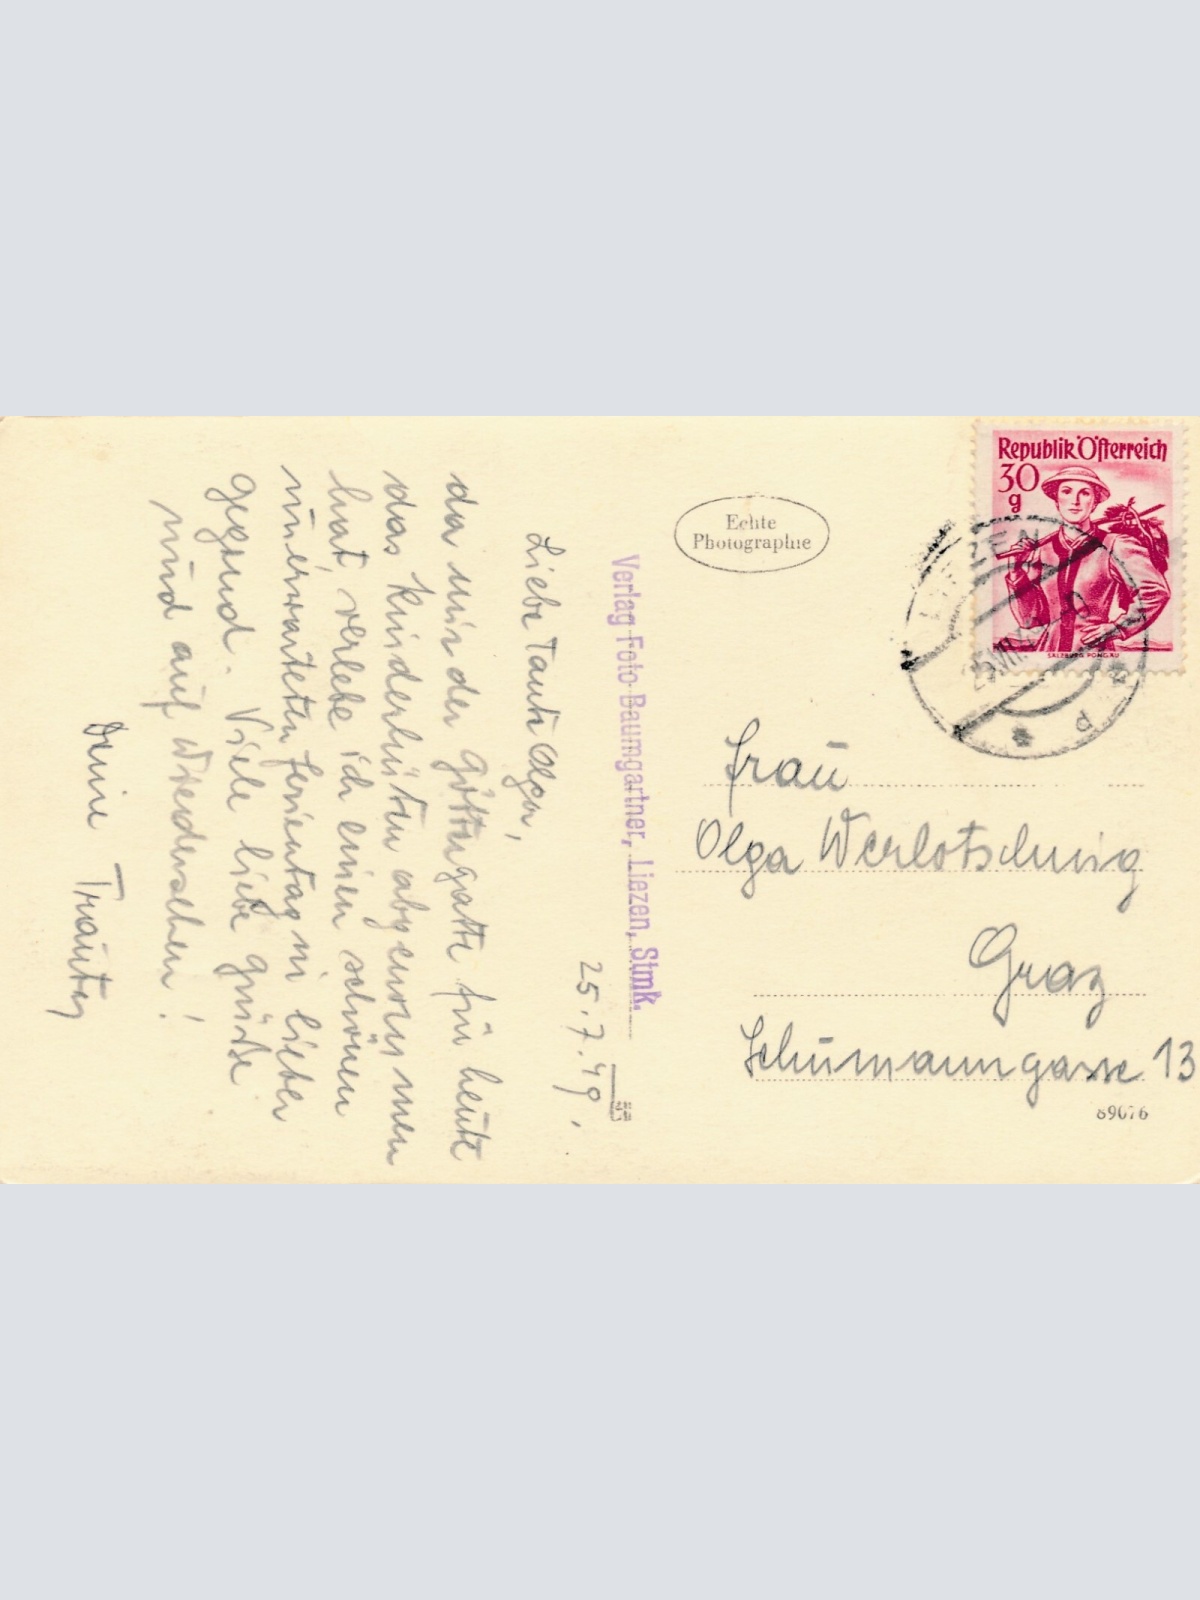 25.7.49.
Liebe Tante Olga,
da mir der Göttergatte für heute
das Kinderhüten abgenommen
hat, verlebe ich einen schönen
unerwarteten Ferientag in lieber
Gegend. Viele liebe Grüße
und auf Wiedersehen!
Deine Trautey
Verlag Foto-Baumgartner, Liezen, Stmk.
Echte
Photographie
Republik Österreich
30
g
SALZBURG PONGAU
LIEZEN
25.VII.49
d
Frau
Olga Werlotschnig
Graz
Schumanngasse 13
89076